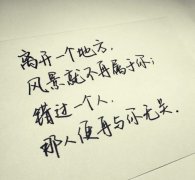 离开一个地方.
风景就不再属于你;
错过一个人.
那人便再与你无关.